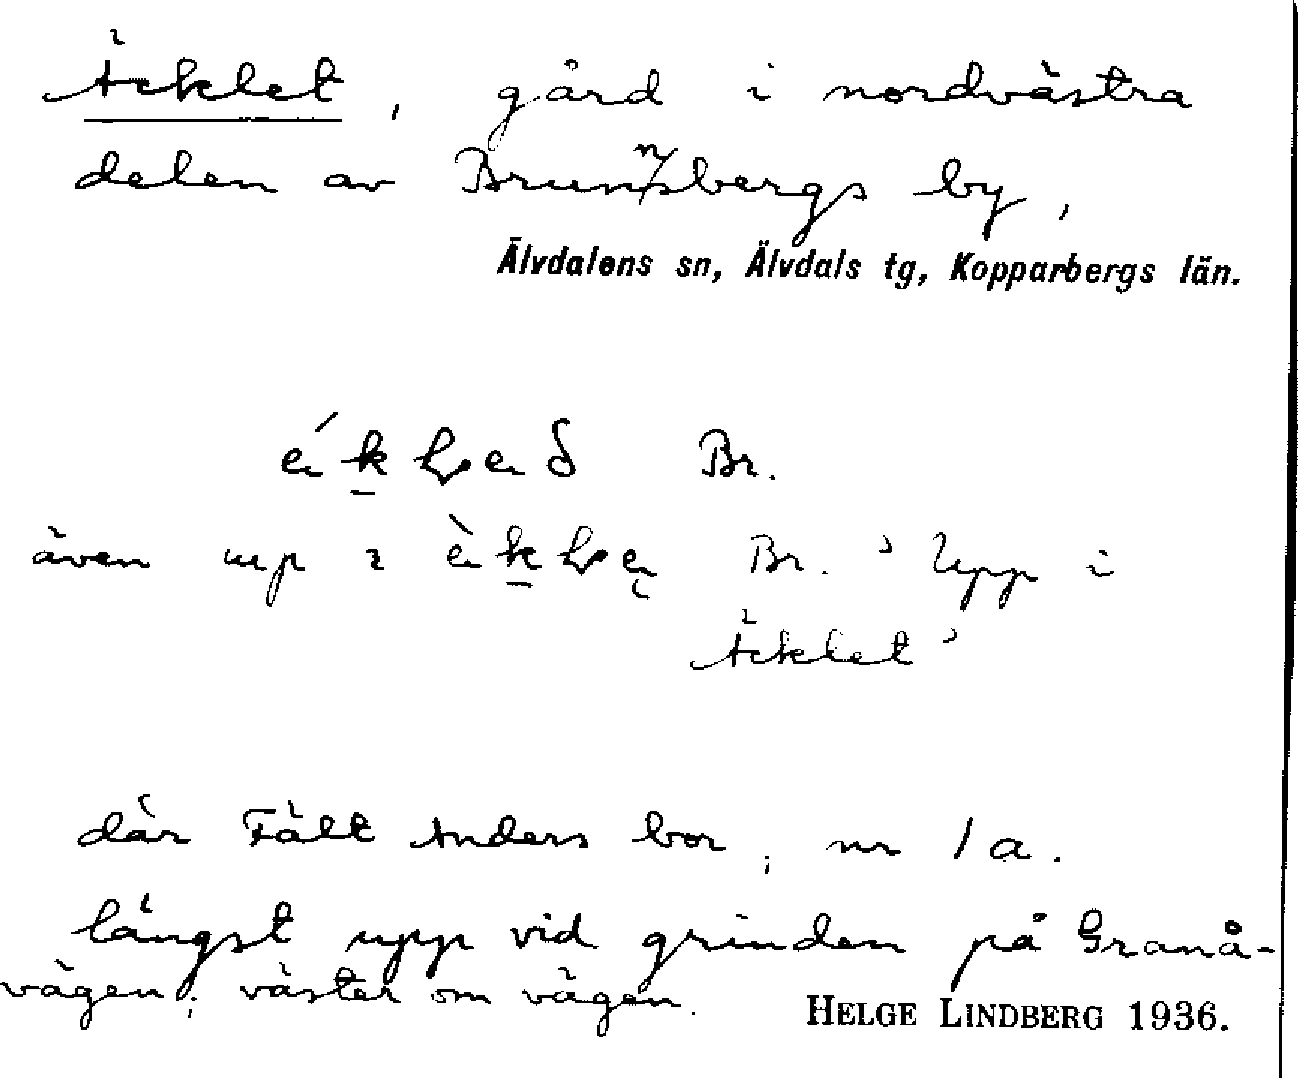 Äcklet, gård i nordvästra
delen av Brunnsbergs by,
Älvdalens sn, Älvdals tg, Kopparbergs län.
Br.
även up Br. ' Upp i
Äcklet '
där Fält Anders bor, nr 1a.
längst upp vid grinden på Granå-
vägen, väster om vägen.
HELGE LINDBERG 1936.